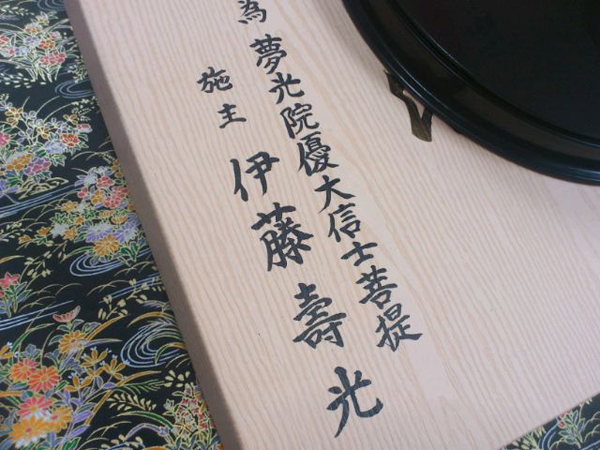 為夢光院優大信士菩提
施主 伊藤壽光